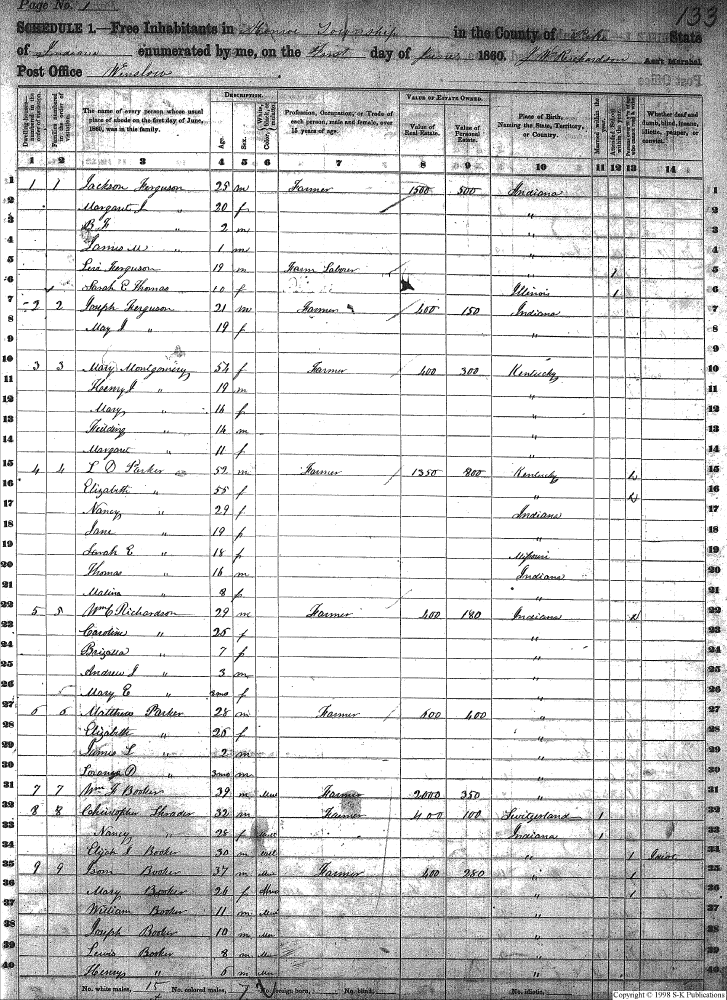 Page No. 1
133
SCHEDULE 1.—Free Inhabitants in Monroe Township in the County of Pike State
of Indiana enumerated by me, on the First day of June 1860. J W Richardson Ass't Marshal.
Post Office Winslow
DESCRIPTION. VALUE OF ESTATE OWNED.
Dwelling-houses—numbered in the order of visitation.
Families numbered in the order of visitation.
The name of every person whose usual place of abode on the first day of June, 1860, was in this family.
Age. Sex. Color,
Profession, Occupation, or Trade of each person, male and female, over 15 years of age.
Value of Real Estate.
Value of Personal Estate.
Place of Birth, Naming the State, Territory, or Country.
Whether deaf and dumb, blind, insane, idiotic, pauper, or convict.
1 2 3 4 5 6 7 8 9 10 11 12 13 14
1 1 1 Jackson Ferguson 25 m Farmer 1500 500 Indiana 1
2 Margaret J " 20 f " 2
3 B F " 2 m " 3
4 James M " 1 m " 4
5 Ferguson 19 m Farm Laborer " 1 5
6 Sarah E Thomas 10 f Illinois 1 6
7 2 2 Joseph Ferguson 21 m Farmer 400 150 Indiana 7
8 May J " 19 f " 8
9 9
10 3 3 Mary Montgomery 54 f Farmer 400 300 Kentucky 10
11 Henry J " 19 m " 11
12 Mary " 16 f " 12
13 Fielding " 14 m " 13
14 Margaret " 11 f " 14
15 4 4 L D Parker 52 m Farmer 1350 800 Kentucky 15
16 Elizabeth " 55 f " 16
17 Nancy " 29 f Indiana 17
18 Jane " 19 f " 18
19 Sarah E " 18 f Missouri 19
20 Thomas " 16 m Indiana 20
21 Malina " 8 f " 21
22 5 5 Wm C Richardson 29 m Farmer 400 180 Indiana 22
23 Caroline " 25 f " 23
24 " 7 f " 24
25 Andrew J " 3 m " 25
26 Mary E " f " 26
27 6 6 Matthew Parker 28 m Farmer 600 400 " 27
28 Elizabeth " 26 f " 28
29 James L " 2 m " 29
30 D " 3mo m " 30
31 7 7 Wm Booker 39 m Mu Farmer 2000 350 " 31
32 8 8 Christopher Shrader 32 m Farmer 400 100 Switzerland 1 32
33 Nancy " 28 f Mu Indiana 1 33
34 Elijah Booker 30 m Mu " 1 34
35 9 9 Booker 37 m Mu Farmer 400 280 " 1 35
36 Mary Booker 24 f Mu " 1 36
37 William Booker 11 m Mu " 37
38 Joseph Booker 10 m Mu " 38
39 Lewis Booker 8 m Mu " 39
40 Henry " 6 m Mu " 40
No. white males, 15 No. colored males, 7 No. foreign born, No. blind, No. idiotic,
Copyright © 1998 S-K Publications